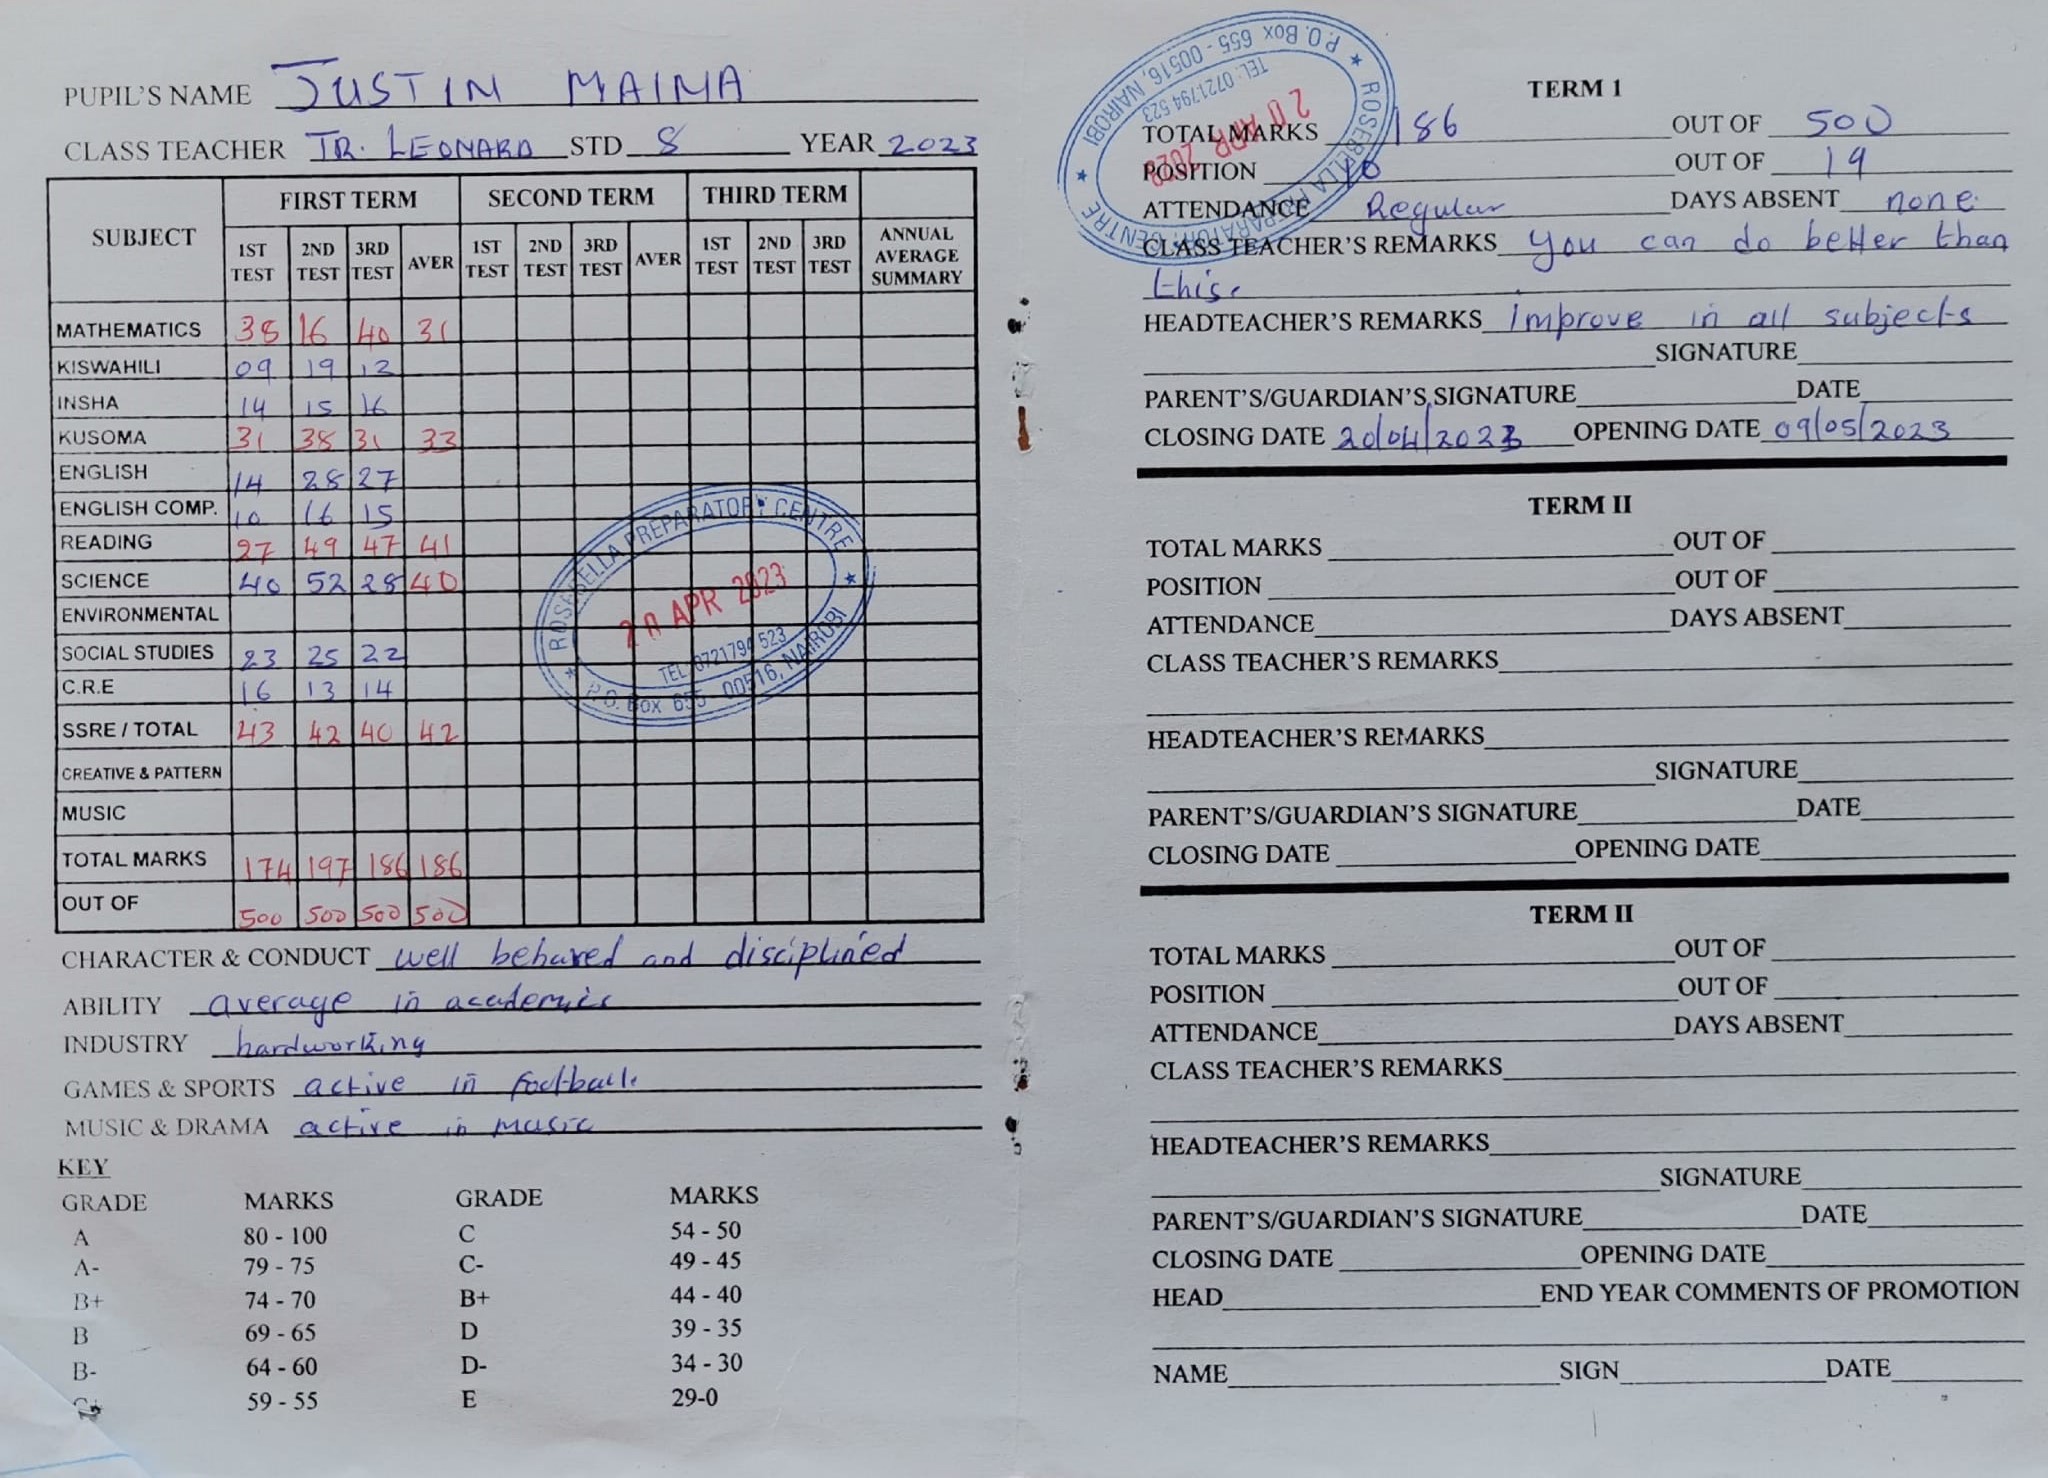 PUPIL'S NAME JUSTIN MAINA
CLASS TEACHER TR. LEONARD STD 8 YEAR 2023
SUBJECT FIRST TERM SECOND TERM THIRD TERM
1ST TEST 2ND TEST 3RD TEST AVER 1ST TEST 2ND TEST 3RD TEST AVER 1ST TEST 2ND TEST 3RD TEST ANNUAL AVERAGE SUMMARY
MATHEMATICS 38 16 40 31
KISWAHILI 09 19 12
INSHA 14 15 16
KUSOMA 31 38 31 33
ENGLISH 14 28 27
ENGLISH COMP. 10 16 15
READING 27 49 47 41
SCIENCE 40 52 28 40
ENVIRONMENTAL
SOCIAL STUDIES 23 25 22
C.R.E 16 13 14
SSRE / TOTAL 43 42 40 42
CREATIVE & PATTERN
MUSIC
TOTAL MARKS 174 197 186 186
OUT OF 500 500 500 500
ROSEBELLA PREPARATORY CENTRE
20 APR 2023
TEL: 0721794 523
P.O. Box 655 - 00516, NAIROBI
CHARACTER & CONDUCT well behaved and disciplined
ABILITY average in academics
INDUSTRY hardworking
GAMES & SPORTS active in football.
MUSIC & DRAMA active in music
KEY
GRADE MARKS GRADE MARKS
A 80 - 100 C 54 - 50
A- 79 - 75 C- 49 - 45
B+ 74 - 70 B+ 44 - 40
B 69 - 65 D 39 - 35
B- 64 - 60 D- 34 - 30
C+ 59 - 55 E 29-0
ROSEBELLA PREPARATORY CENTRE
P.O. Box 655 - 00516, NAIROBI
TEL: 0721794 523
20 APR 2023
TERM 1
TOTAL MARKS 186 OUT OF 500
POSITION 10 OUT OF 19
ATTENDANCE Regular DAYS ABSENT none
CLASS TEACHER'S REMARKS You can do better than
this.
HEADTEACHER'S REMARKS improve in all subjects
SIGNATURE
PARENT'S/GUARDIAN'S SIGNATURE DATE
CLOSING DATE 20/04/2023 OPENING DATE 09/05/2023
TERM II
TOTAL MARKS OUT OF
POSITION OUT OF
ATTENDANCE DAYS ABSENT
CLASS TEACHER'S REMARKS
HEADTEACHER'S REMARKS
SIGNATURE
PARENT'S/GUARDIAN'S SIGNATURE DATE
CLOSING DATE OPENING DATE
TERM II
TOTAL MARKS OUT OF
POSITION OUT OF
ATTENDANCE DAYS ABSENT
CLASS TEACHER'S REMARKS
HEADTEACHER'S REMARKS
SIGNATURE
PARENT'S/GUARDIAN'S SIGNATURE DATE
CLOSING DATE OPENING DATE
HEAD END YEAR COMMENTS OF PROMOTION
NAME SIGN DATE